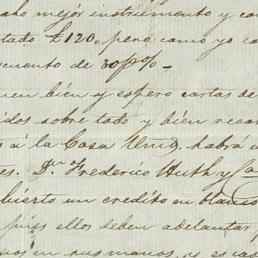 mejor instrumento y con
tado £120., pero como yo co
cuento de 30 p% –
bien y espero cartas de
dos sobre todo y bien recom
s á la Casa Una, habrá u
es. Dn. Frederico Huth y Ca
bierto un credito en blanco
pues ellos deben adelantar
en sus manos, y es